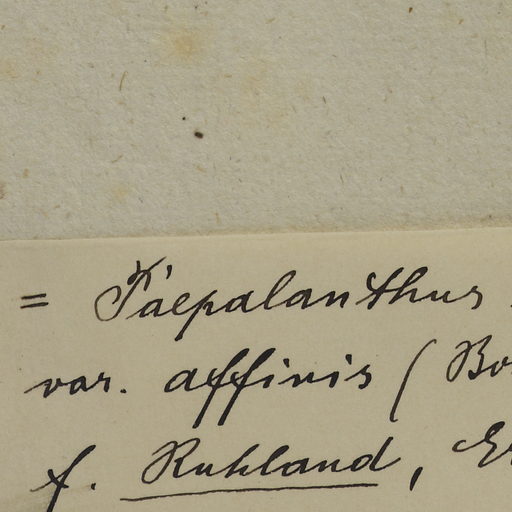 = Paepalanthus
var. affinis (Bo
f. Ruhland, Er